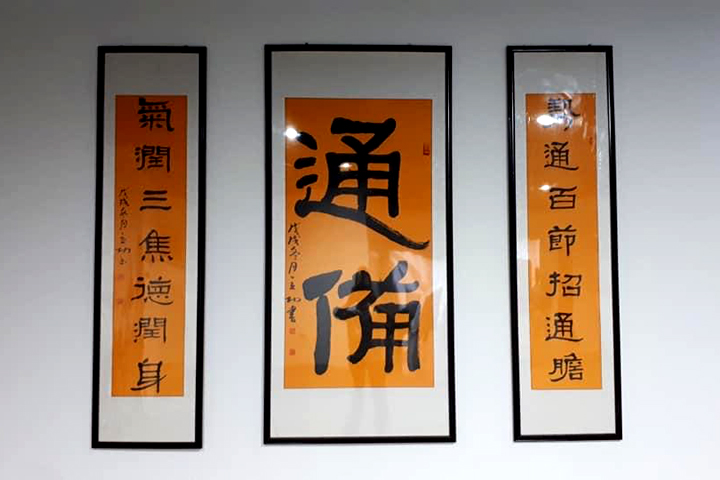 通百節招通膽
通備
戊戌冬月
氣潤三焦德潤身
戊戌冬月